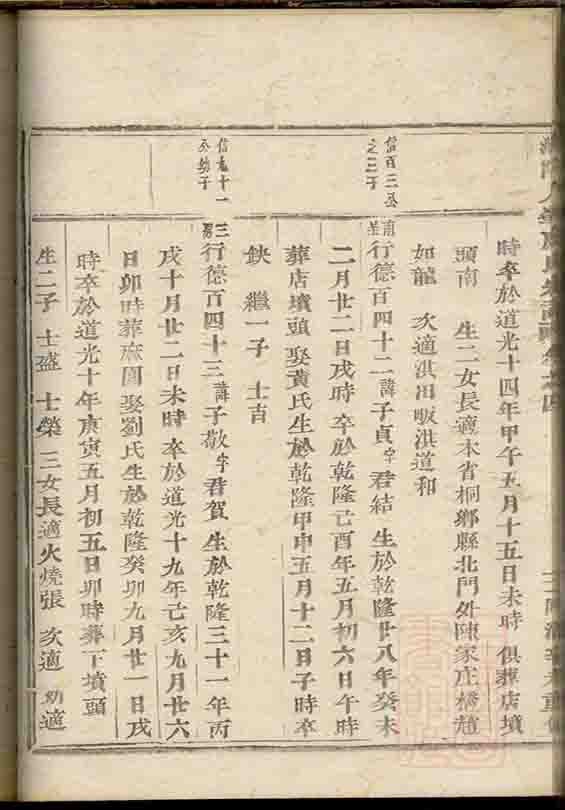 時卒於道光十四年甲午五月十五日未時 俱葬店墳
頭南 生二女長適本省桐鄉縣北門外陳家庄橋趙
如龍 次適洪田畈洪道和
信百三公
之三子
行德百四十二諱子貞字君結 生於乾隆廿八年癸未
二月廿二日戌時 卒於乾隆己酉年五月初六日午時
葬店墳頭 娶黃氏生於乾隆甲申五月十二日子時卒
缺 繼一子 士吉
行德百四十三諱子敬字君賀 生於乾隆三十一年丙
戌十月廿二日未時 卒於道光十九年己亥九月廿六
日卯時葬麻園 娶劉氏生於乾隆癸卯九月廿一日戌
時 卒於道光十年庚寅五月初五日卯時葬下墳頭
生二子 士盛 士榮 三女長適火燒張 次適 幼適